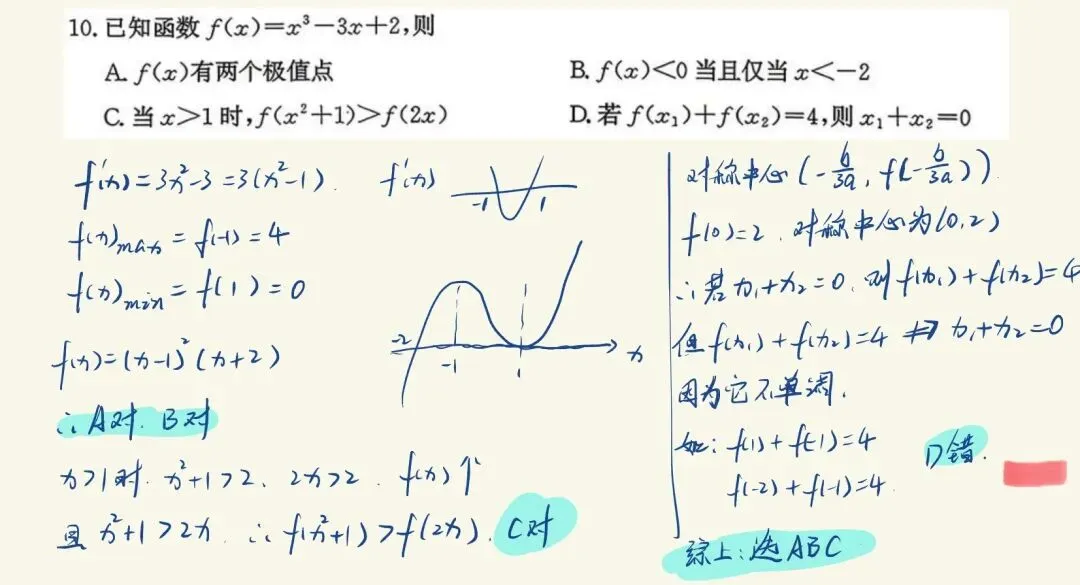 10. 已知函数 f(x)=x³-3x+2,则
A. f(x)有两个极值点 B. f(x)<0 当且仅当 x<-2
C. 当 x>1 时, f(x²+1)>f(2x) D. 若 f(x₁)+f(x₂)=4,则 x₁+x₂=0
f'(x)=3x²-3=3(x²-1). f'(x)
-1 1
f(x)max=f(-1)=4
f(x)min=f(1)=0
f(x)=(x-1)²(x+2)
-2 -1 1 x
∴A对. B对
x>1时. x²+1>2、 2x>2. f(x)↑
且 x²+1>2x. ∴f(x²+1)>f(2x). C对
对称中心(-b/3a, f(-b/3a))
f(0)=2. 对称中心为(0,2)
∴若x₁+x₂=0,则f(x₁)+f(x₂)=4
但f(x₁)+f(x₂)=4 ⇏ x₁+x₂=0
因为它不单调.
如: f(1)+f(-1)=4
f(-2)+f(-1)=4. D错.
综上:选ABC